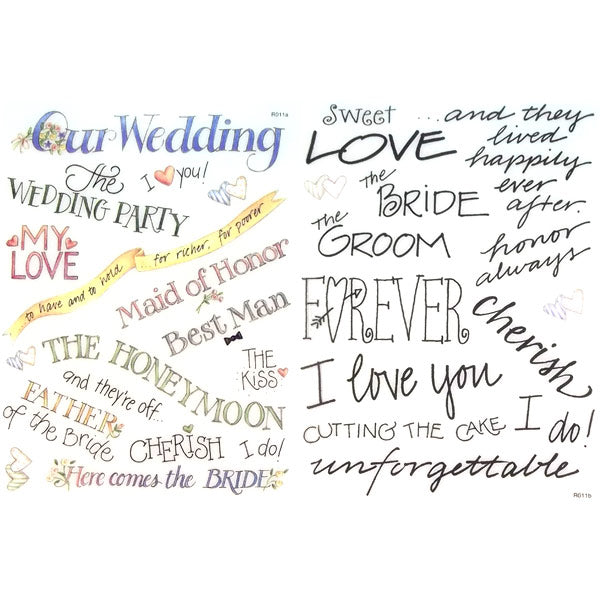 R011a
Our Wedding
The
WEDDING PARTY
I you!
MY
LOVE
...to have and to hold ...for richer, for poorer
Maid of Honor
Best Man
THE HONEYMOON
and they're off...
THE
KISS
FATHER
of the Bride
CHERISH
I do!
Here comes the BRIDE
Sweet
LOVE
...and they
lived
happily
ever
after.
the
BRIDE
the
GROOM
honor
always
FOREVER
cherish
I love you
CUTTING THE CAKE
I do!
unforgettable
R011b